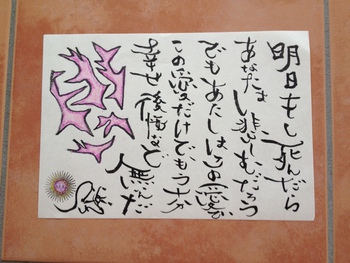 明日もし死んだら
あなたは悲しむだろう
でもあたしはこの愛が
この愛だけでもう十分
幸せ後悔など無いんだ